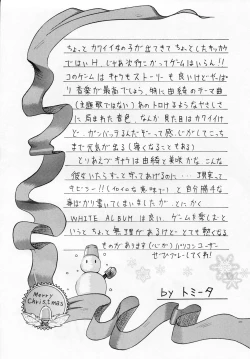 ちょっとカワイイ女の子が出てきてちょっとしたキッカケ
ではいH、じゃあ次行こかってゲームはいらん!!
このゲームはキャラもストーリーも良いけどやっぱ
り音楽が最高でしょう。特に由綺のテーマ
(主題歌ではない)あのトロけるようなやさしさ
に包まれた音色、なんか見た目はカワイイけ
ど、ガンバッてるんだぞーって感じがしてこっち
まで元気が出る(痛くなることもある)
とりあえずキャラは由綺と美咲かな こんな
彼女いたらすっごく守ってあげるのに… 現実って
キビシー!!(イロイロな意味で)と自分勝手な
事ばかり書いてしまいましたが、とにかく
WHITE ALBUMは良い。ゲームを楽しむと
いうとちょっと無理があるけど、とても熱くなる
ものがあります(心が)パソコンユーザー
ぜひプレーしてくれ!
by トミータ
Merry
Christmas